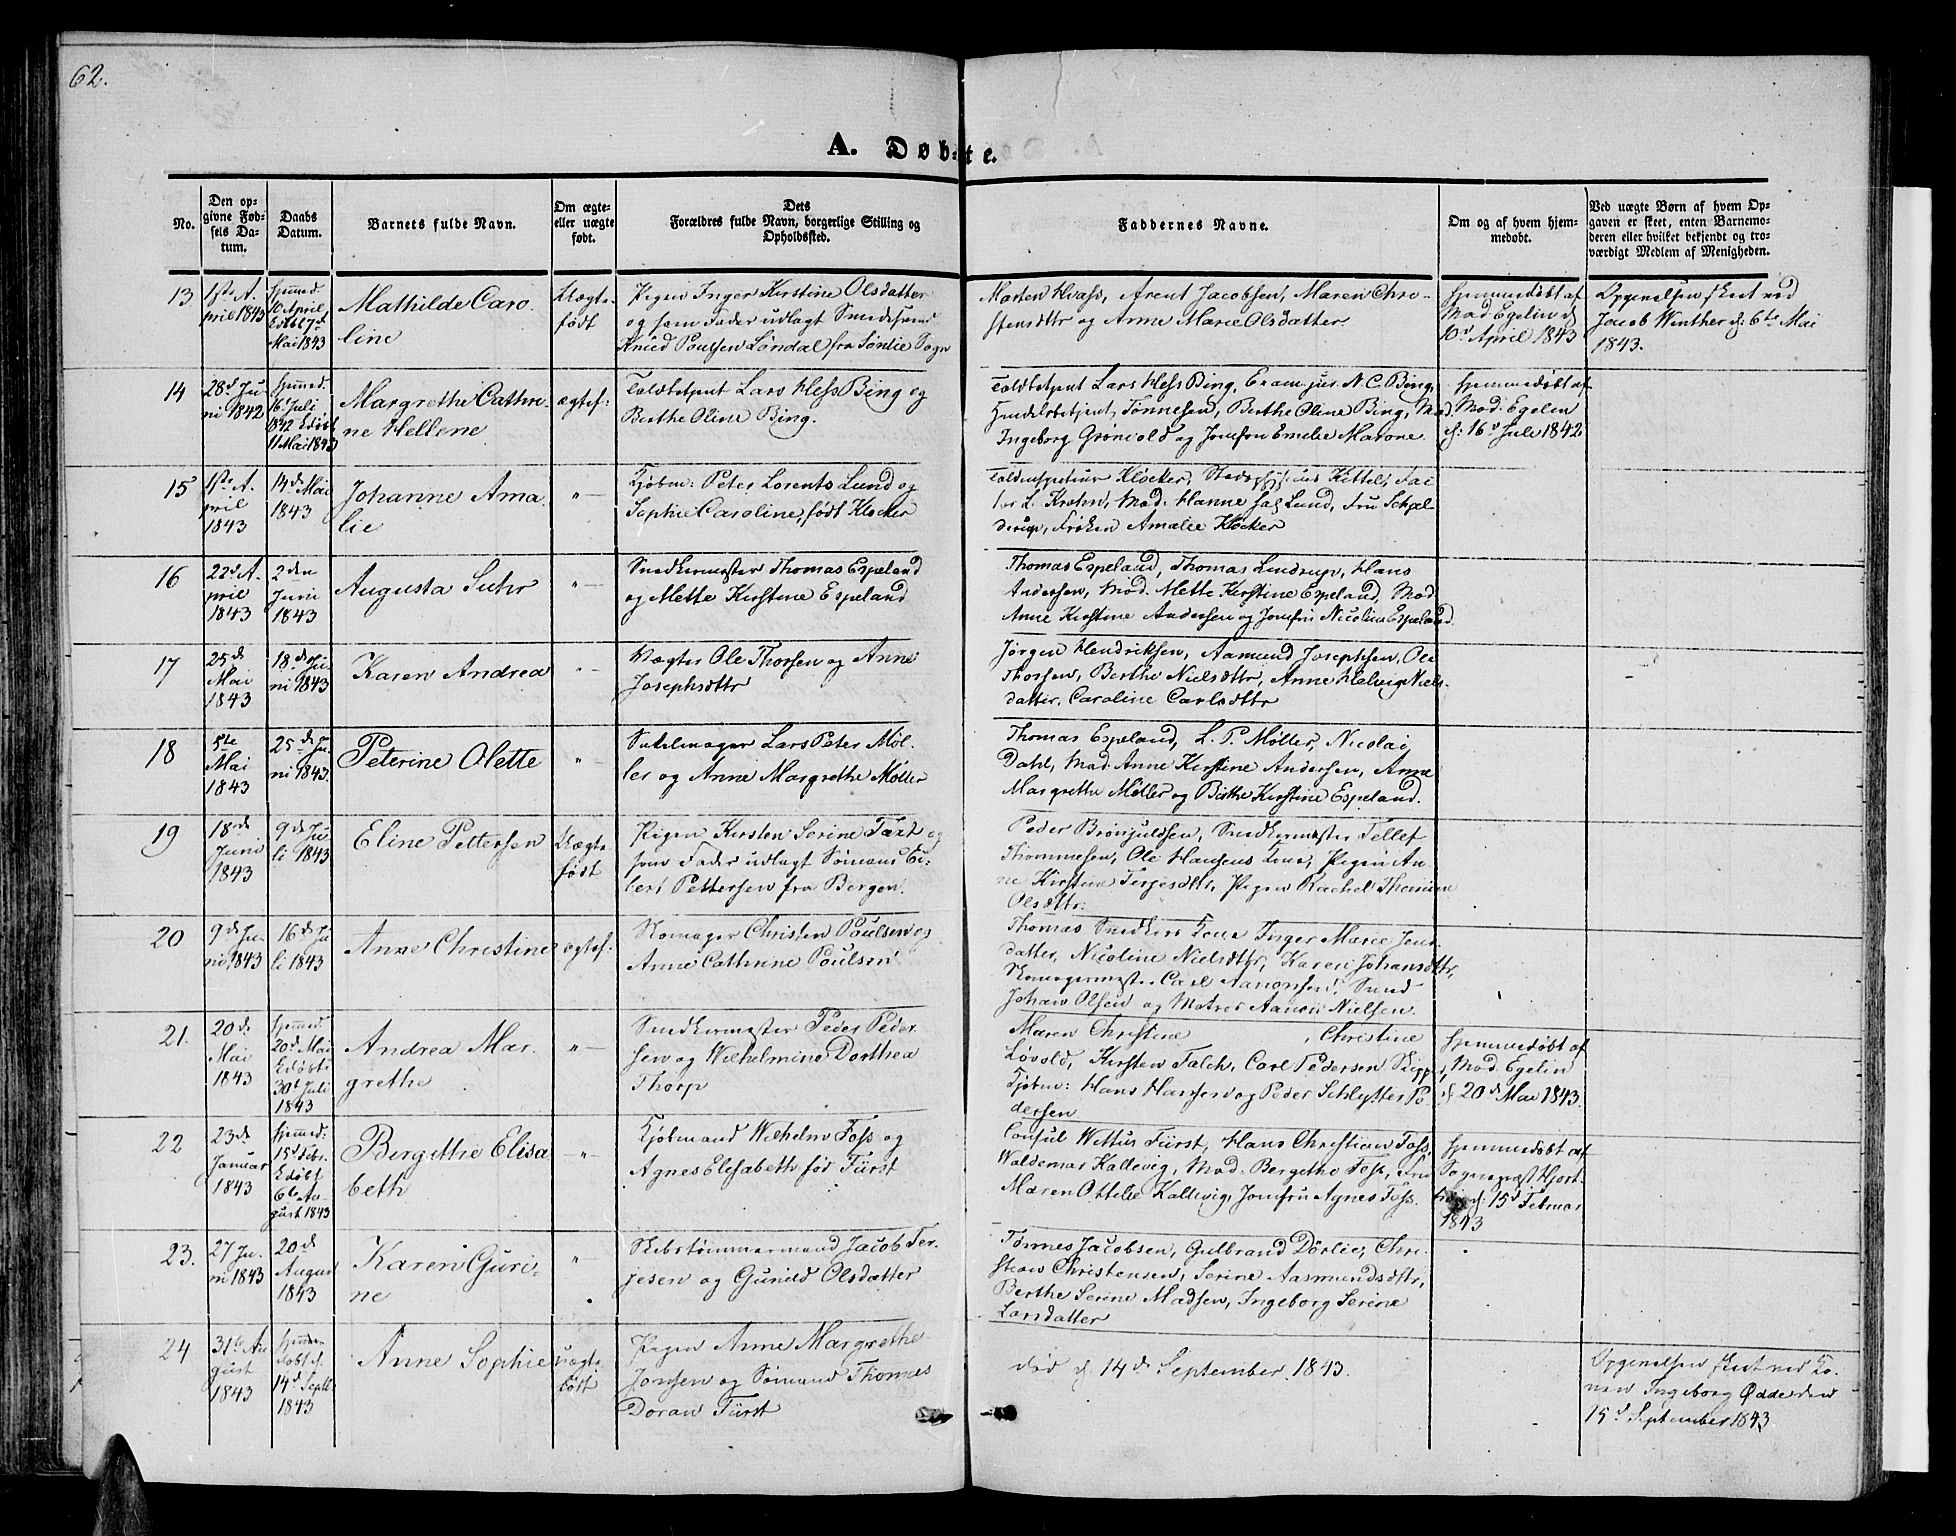 62.
A. Døbte.
No.
Den op-
givne Fød-
sels Da-
tum.
Daabs
Datum.
Barnets fulde Navn.
Om ægte
eller uægte
født.
Dets
Forældres fulde Navn, borgerlige Stilling og
Opholdssted.
Faddernes Navne.
Om og af hvem hjem-
medøbt.
Ved uægte Børn af hvem Op-
gaven er skeet, enten Barnemo-
deren eller hvilket bekjendt og tro-
værdigt Medlem af Menigheden.
13
1ste A-
pril 1843
hjemmed.
10 April
Edøbt 7d
Mai 1843
Mathilde Caro
line
Uægte
født
Pigen Inger Kirstine Olsdatter
og som Fader udlagt Smedesvend
Knud Poulsen Løndal fra Søndle Sogn
Morten Hvass, Arent Jacobsen, Maren Chri-
stensdttr og Anne Marie Olsdatter.
Hjemmedøbt af
Mad Egelin d
10d April 1843
Opgivelsen skeet ved
Jacob Winther d: 6te Mai
1843.
14
28d Ju
ni 1842
hjemmed.
16 Juli
1842 Edøbt
11 Mai 1843
Margrethe Cathri-
ne Hellene
ægtef-
Toldbetjent Lars Hess Bing og
Berthe Oline Bing.
Toldbetjent Lars Hess Bing, Exam. jur. N. C. Bing,
Tønnesen, Berthe Oline Bing, Mad.
Ingeborg Grønvold og Jomfru Emelie Marone.
Hjemmedøbt af
Mad. Egelin
d: 16d Juli 1842
15
1ste A-
pril
1843
14de Mai
1843
Johanne Ama
lie
"—
Kjøbm: Peter Lorents Lund og
Sophie Caroline, født Kløcker
Toldinspecteur Kløcker, Stadsphysicus Kittel,
L. Krohn, Mad. Hanne sal Lund, Fru Schjel-
derup, Frøken Amalie Kløcker
16
22d A-
pril
1843
2den
Juni
1843
Augusta Suhr
"—
Snedkermester Thomas Espeland
og Mette Kirstine Espeland
Thomas Espeland, Thomas Lindrup, Hans
Andersen, Mad. Mette Kirstine Espeland, Mad
Anne Kirstine Andersen og Jomfru Nicoline Espeland.
17
25de
Mai
1843
18de Ju
ni 1843
Karen Andrea
"—
Vægter Ole Thorsen og Anne
Josephsdttr
Jørgen Hendriksen, Aamund Josephsen, Ole
Thorsen, Berthe Nielsdttr, Anne Helvig Niels-
datter, Caroline Carlsdttr
18
5te
Mai
1843
25de Ju
ni 1843.
Peterine Olette
"—
Sadelmager Lars Peter Møl-
ler og Anne Margrethe Møller
Thomas Espeland, L. P. Møller, Nicolai
Dahl, Mad Anne Kirstine Andersen, Anne
Margrethe Møller og Birthe Kirstine Espeland.
19
18de
Juni
1843
9de Ju
li 1843
Eline Pettersen
Uægte
født
Pigen Kirsten Serine Taxt og
som Fader udlagt Sømand Ei-
lert Pettersen fra Bergen.
Peder Brønjuldsen, Snedkermester Tellef
Thommesen, Ole Hansens Kone, Pigen An-
ne Kirstine Terjesdttr, Pigen Rachel Thomine
Olsdttr.
20
9de Ju-
ni 1843
16de Ju
li 1843
Anne Christine
ægtef-
Skomager Christen Poulsen og
Anne Cathrine Poulsen
Thomas Snedkers Kone Inger Marie Jens-
datter, Nicoline Nielsdttr, Karen Johansdttr,
Skomagermester Carl Aanonsen, Svend
Johan Olsen og Matros Aanon Nielsen.
21.
20de
Mai
1843
hjemmed
20d Mai
Edøbt
30t Juli
1843
Andrea Mar-
grethe
"—
Snedkermester Peder Peder
sen og Wilhelmine Dorthea
Thorp
Maren Christine , Christine
Løvold, Kirsten Falch, Carl Pedersen Skipp,
Kjøbm: Hans Hansen og Peder Schlytter Pe-
dersen
Hjemmedøbt af
Mad. Egelin
d 20d Mai 1843.
22
23de
Januar
1843
hjemmed:
15 Febr.
Edøbt
6te Au-
gust 1843
Bergithe Elisa
beth
"—
Kjøbmand Wilhelm Foss og
Agnes Elisabeth fød Fürst
Consul Wettus Fürst, Hans Christian Foss,
Waldemar Kallevig, Mad. Bergithe Foss, Fru
Maren Ottilie Kallevig, Jomfru Agnes Foss.
Hjemmedøbt af
Sogneprest Hjort-
d: 15d Februar
1843
23.
27 Ju-
ni 1843
20de
August
1843
Karen Guri-
ne
"
Skibstømmermand Jacob Ter-
jesen og Gunild Olsdatter
Tønnes Jacobsen, Gulbrand Dørlie, Chri-
stian Christensen, Serine Aasmundsdttr,
Berthe Serine Madsen, Ingeborg Serine
Larsdatter
24
31te Au
gust
1843
hjemme-
døbt d.
14d Septb
1843
Anne Sophie
uægte
født
Pigen Anne Margrethe
Jensen og Sømand Thomas
Doran Fürst
død d. 14de September 1843.
Opgivelsen skeet ved Ko-
nen Ingeborg Ødde den
15d September 1843.